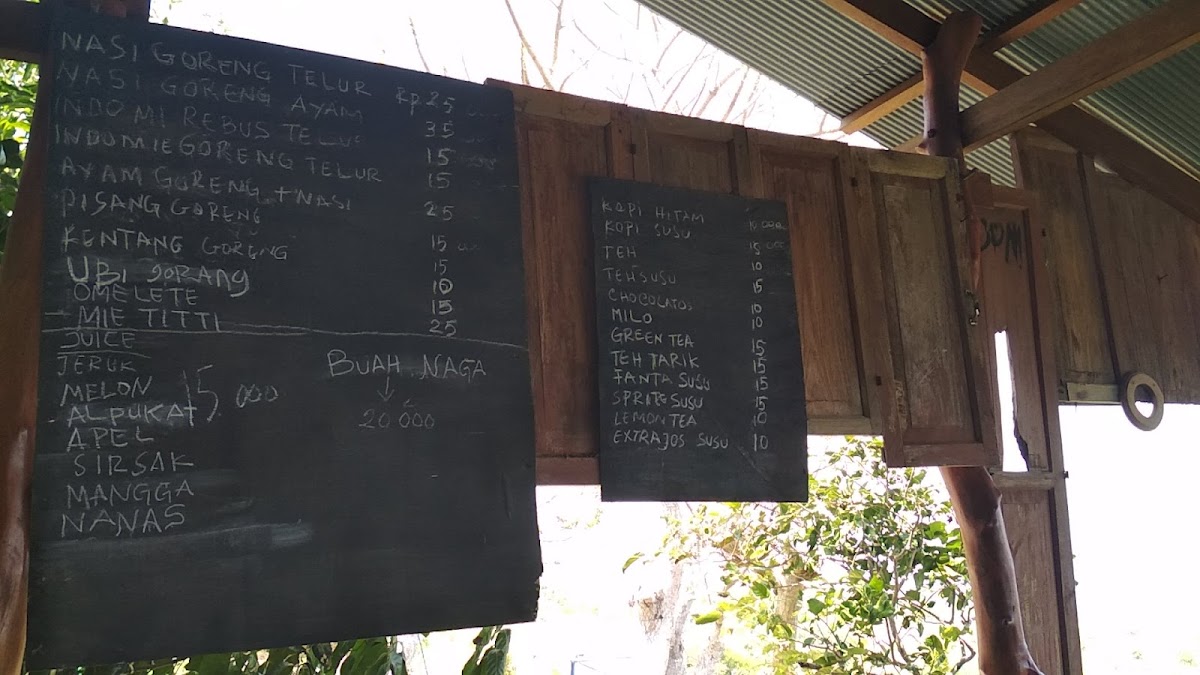 NASI GORENG TELUR Rp 25
NASI GORENG AYAM 35
INDO MI REBUS TELUR 15
INDOMIE GORENG TELUR 15
AYAM GORENG + NASI 25
PISANG GORENG 15
KENTANG GORENG 15
UBI GORANG 10
OMELETE 15
MIE TITTI 25
JUICE
JERUK
MELON
ALPUKAT
APEL
SIRSAK
MANGGA
NANAS
15 000
BUAH NAGA
20 000
KOPI HITAM 10 000
KOPI SUSU 15 000
TEH 10
TEH SUSU 15
CHOCOLATOS 10
MILO 10
GREEN TEA 15
TEH TARIK 15
FANTA SUSU 15
SPRITE SUSU 15
LEMON TEA 10
EXTRAJOS SUSU 10